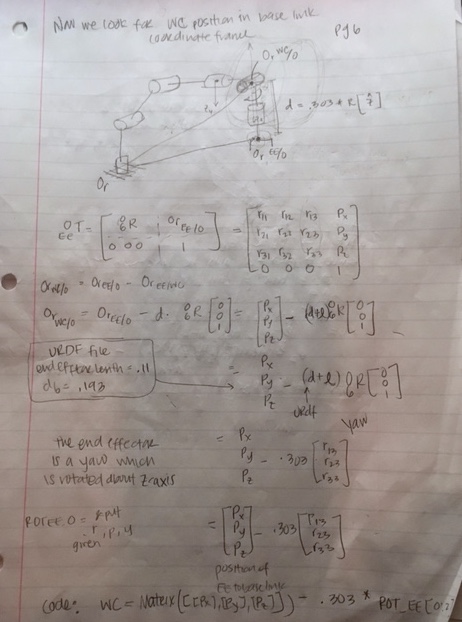 Now we look for WC position in base link
coordinate frame
pg 6
Or WC/0
d = .303 * R [ẑ]
Or EE/0
Or
0 EE T = [ 0 6 R Or EE/0 0 0 0 1 ] = [ r11 r12 r13 Px
r21 r22 r23 Py
r31 r32 r33 Pz
0 0 0 1 ]
Or WC/0 = Or EE/0 - Or EE/WC
Or WC/0 = Or EE/0 - d · 0 6 R [ 0 0 1 ] = [ Px Py Pz ] - (d+l) 0 6 R [ 0 0 1 ]
URDF file
end effector length = .11
d6 = .193
= Px Py Pz - (d+l) 0 6 R [ 0 0 1 ]
urdf
yaw
the end effector
is a yaw which
is rotated about z-axis
= Px Py Pz - .303 [ r13 r23 r33 ]
ROTEE, 0 =
r, p, y
given
= [ Px Py Pz ] - .303 [ r13 r23 r33 ]
position of
EE to base link
Code: WC = Matrix([[Px],[Py],[Pz]]) - .303 * ROT_EE[0:2